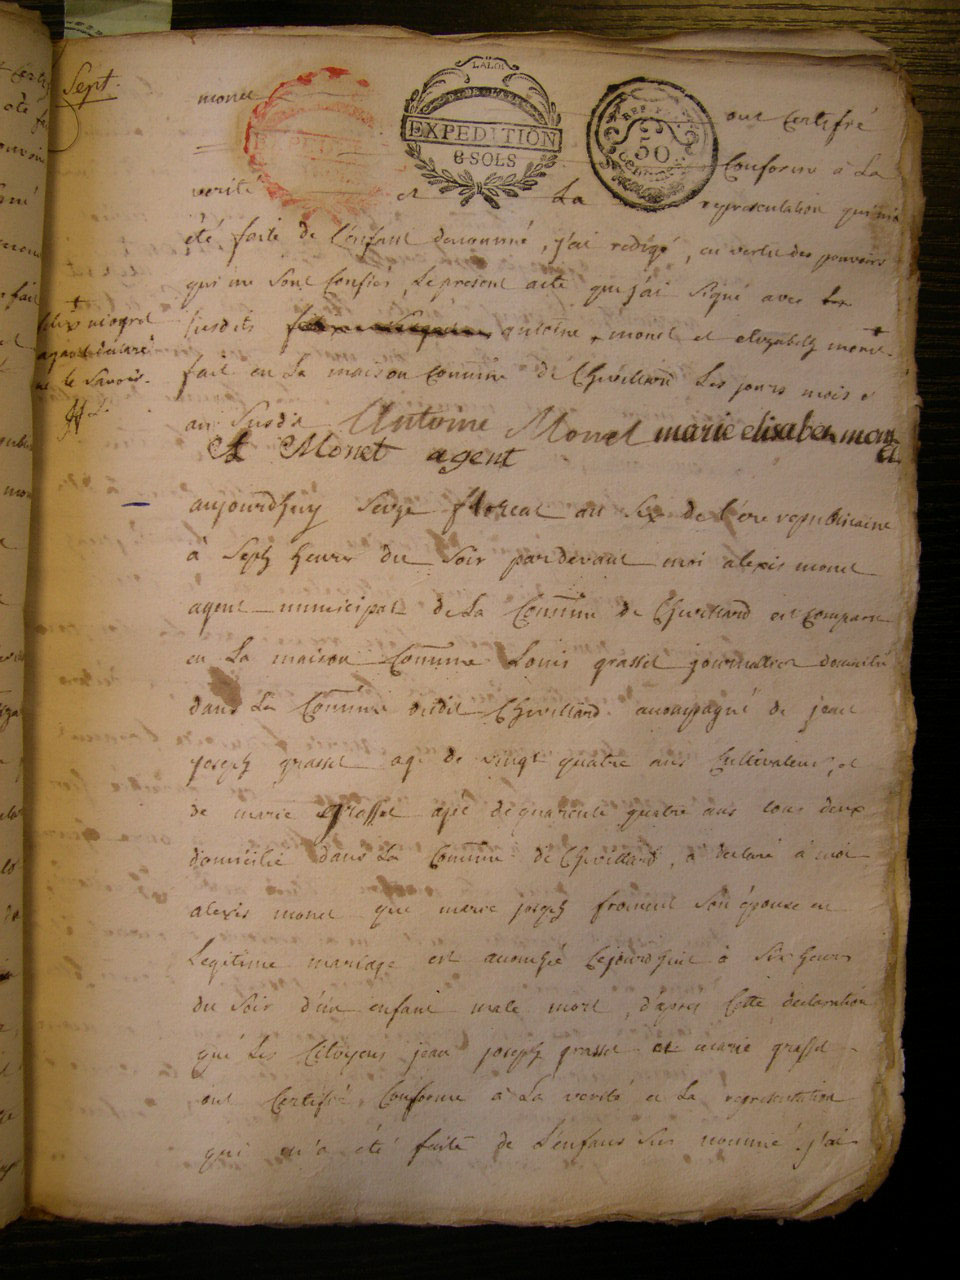 Sept.
LA LOI
EXPEDITION
6 SOLS
REP. FRA.
50
CENTIMES
monet ont Certifié
Conforme à La
verité et La representation qui m'a
été faite de l'enfant denommé, j'ai redigé, en vertu des pouvoirs
qui me sont Confiés, Le present acte que j'ai signé avec Les
susdits antoine monet et elizabeth monet.
fait en La maison Commune de Chevillard Les jours mois et
an susdit Antoine Monet marie elisabeh monet
A Monet agent
ayant declaré
ne le savoir.
aujourdhuy seize floreal an six de l'ere republicaine
à Sept heures du Soir pardevant moi alexis monet
agent municipal de La Commune de Chevillard est Comparu
en La maison Commune Louis grasset journallier domicilié
dans La Commune dudit Chevillard accompagné de jean
joseph grasset agé de vingt quatre ans Cultivateur, et
de marie grasset agée de quarente quatre ans tous deux
domicilié dans La Commune de Chevillard, a declaré à moi
alexis monet que marie joseph froment son épouse en
Legitime mariage est accouchée Cejourdhui à Six heures
du Soir d'un enfant male mort, d'apres Cette declaration
que Les Citoyens jean joseph grasset et marie grasset
ont Certifié, Conforme à La verité et La representation
qui m'a été faite de L'enfant sus nommé. j'ai